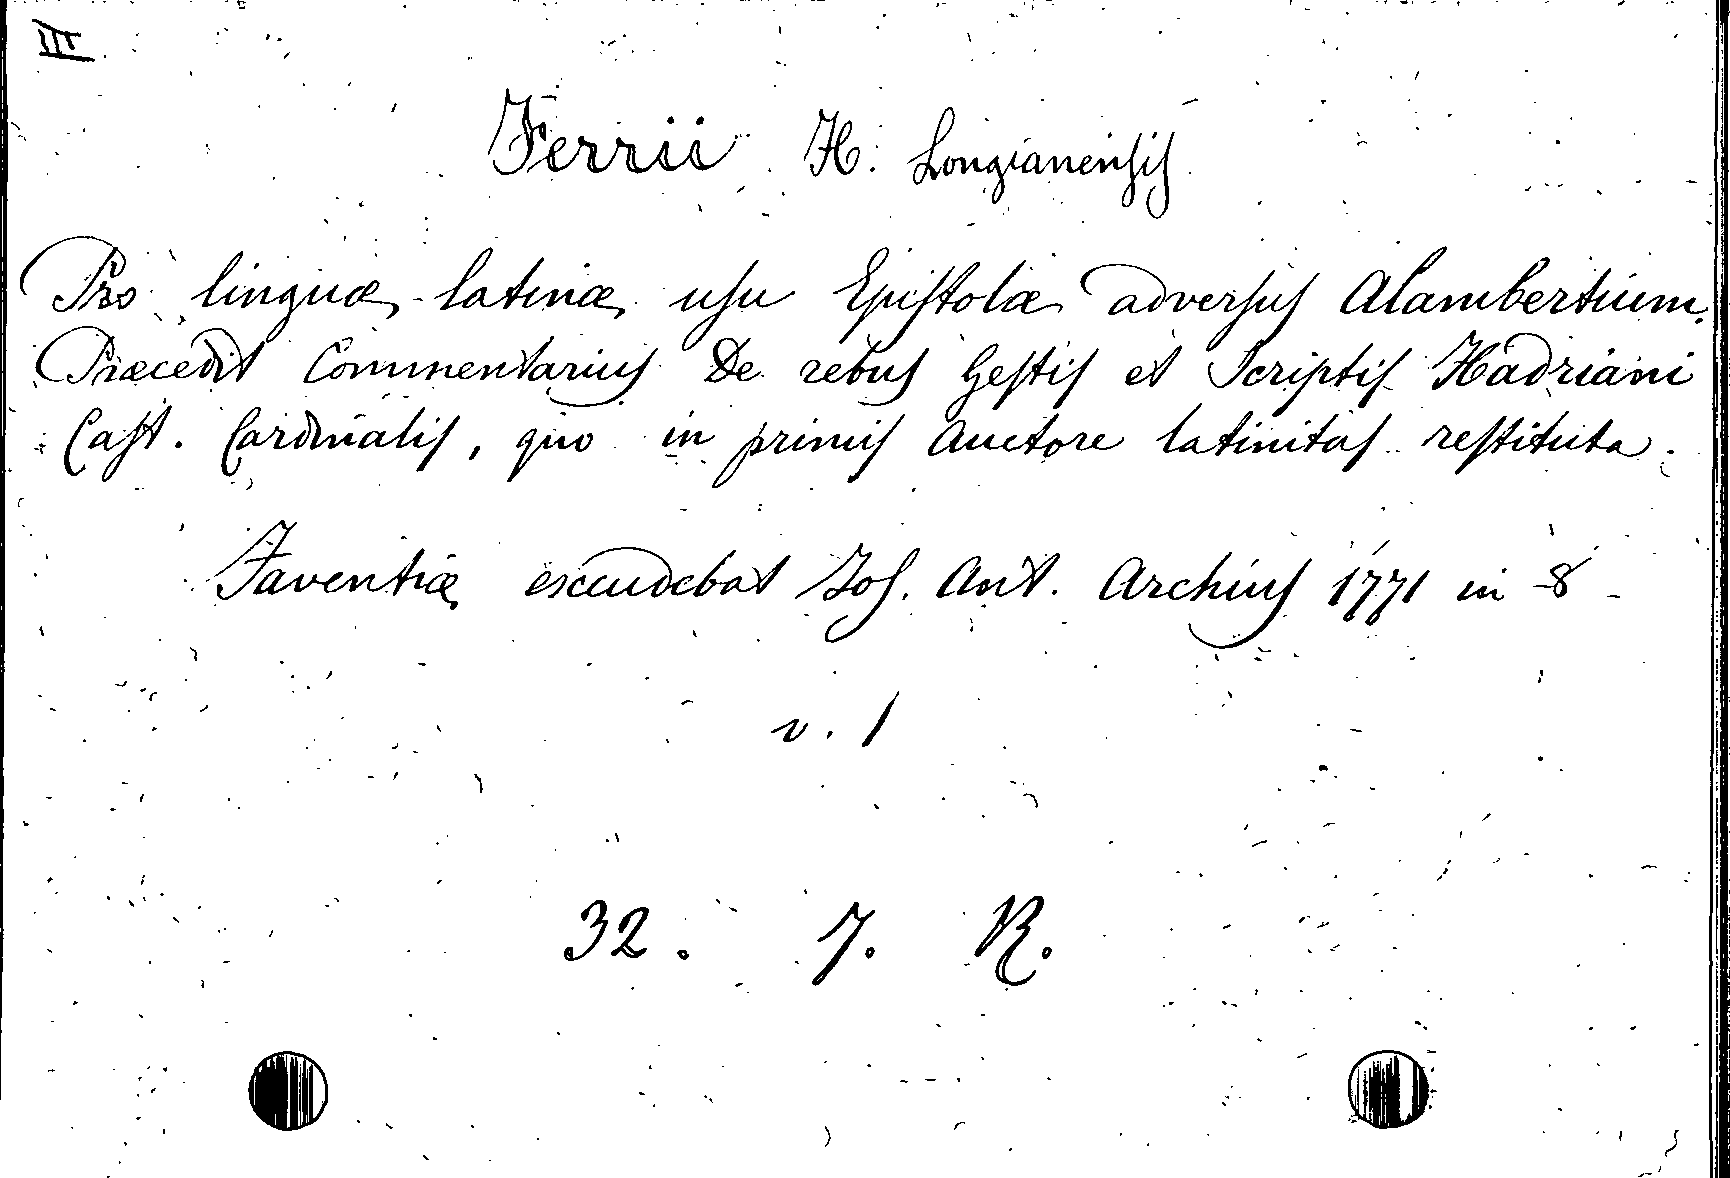 III
Ferrii H. Longianensis
Pro linguæ latinæ usu Epistolæ adversus Alambertium.
Præcedit Commentarius De rebus Gestis et Scriptis Hadriani
Cast. Cardinalis, quo in primis Auctore latinitas restituta.
Faventiæ excudebat Jos. Ant. Archius 1771 in 8
v. 1
32. 7. R.